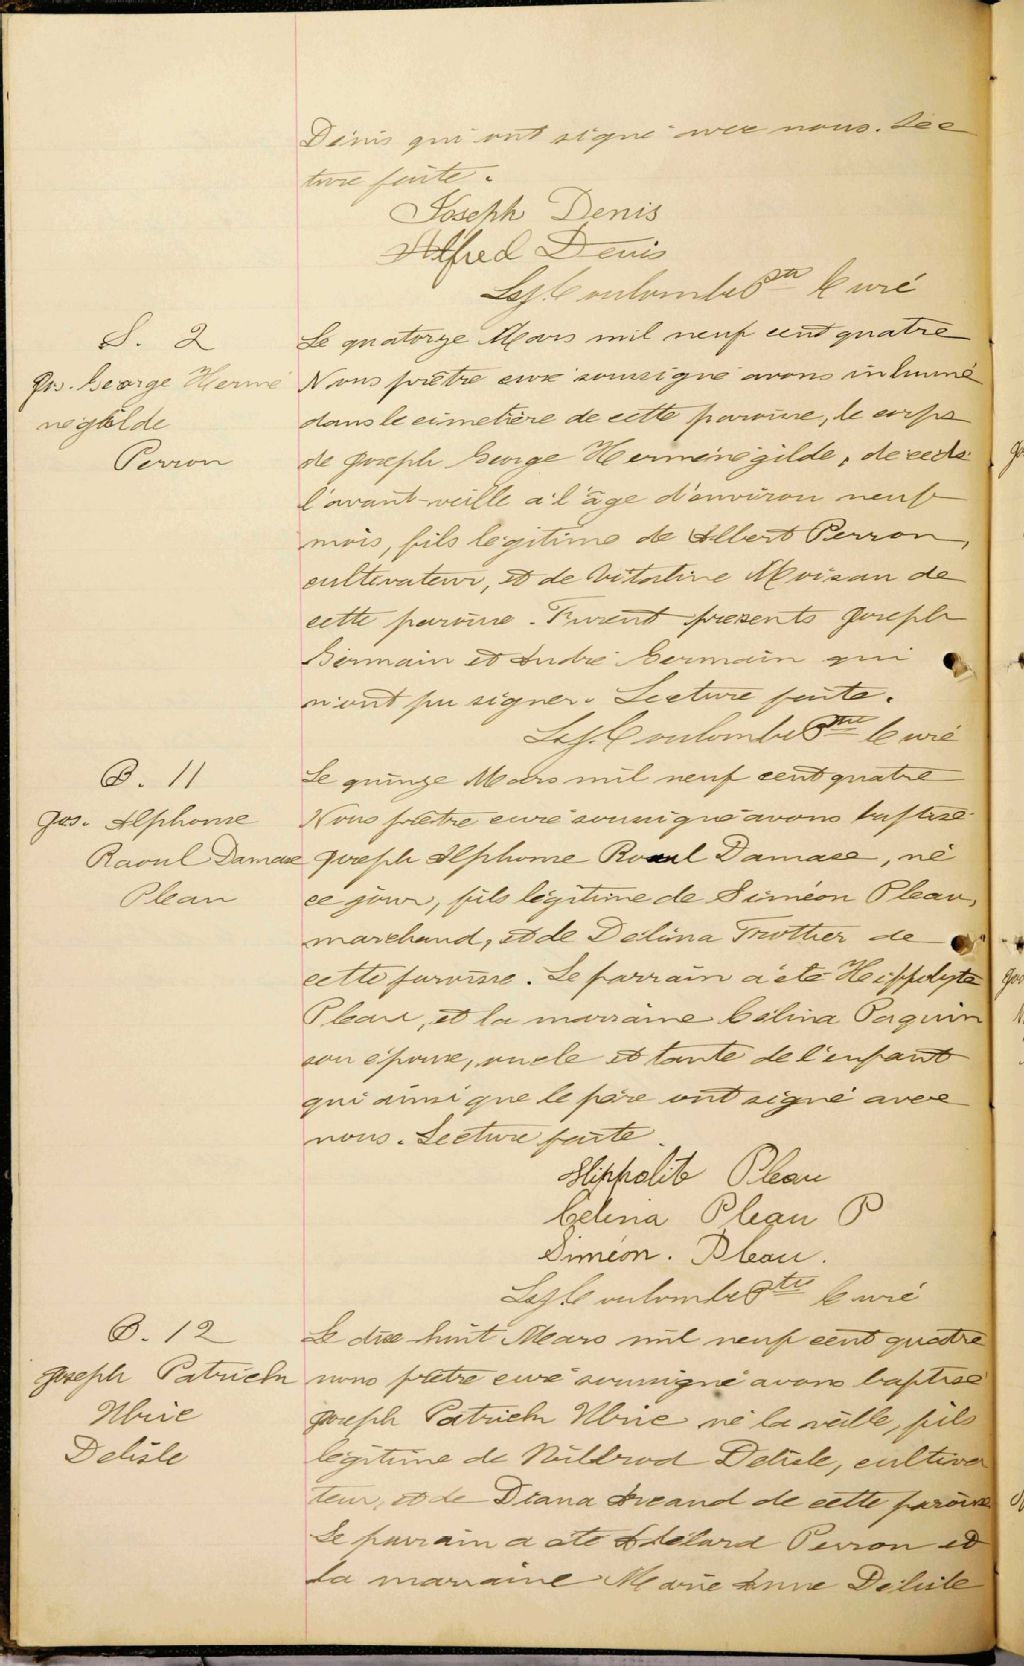 Denis qui ont signé avec nous. Lec
ture faite.
Joseph Denis
Alfred Denis
Ls J. Coulombe Ptre Curé
S. 2
Jos. George Hermé
négilde
Perron
Le quatorze Mars mil neuf cent quatre
Nous prêtre curé soussigné avons inhumé
dans le cimetière de cette paroisse, le corps
de Joseph George Herménégilde, décédé
l'avant-veille à l'âge d'environ neuf
mois, fils légitime de Albert Perron,
cultivateur, et de Moisan de
cette paroisse. Furent présents Joseph
Germain et André Germain qui
n'ont pu signer. Lecture faite.
Ls J. Coulombe Ptre Curé
B. 11
Jos. Alphonse
Raoul Damase
Pleau
Le quinze Mars mil neuf cent quatre
Nous prêtre curé soussigné avons baptisé
Joseph Alphonse Raoul Damase, né
ce jour, fils légitime de Siméon Pleau,
marchand, et de Délima Trottier de
cette paroisse. Le parrain a été Hippolyte
Pleau, et la marraine Célina Paquin
son épouse, oncle et tante de l'enfant
qui ainsi que le père ont signé avec
nous. Lecture faite.
Hippolite Pleau
Celina Pleau P
Siméon. Pleau.
Ls J. Coulombe Ptre Curé
B. 12
Joseph Patrick
Ulric
Delisle
Le dix huit Mars mil neuf cent quatre
nous prêtre curé soussigné avons baptisé
Joseph Patrick Ulric né la veille, fils
légitime de Delisle, cultiva
teur, et de Diana de cette paroisse
Le parrain a été Adélard Perron et
la marraine Marie Anne Delisle